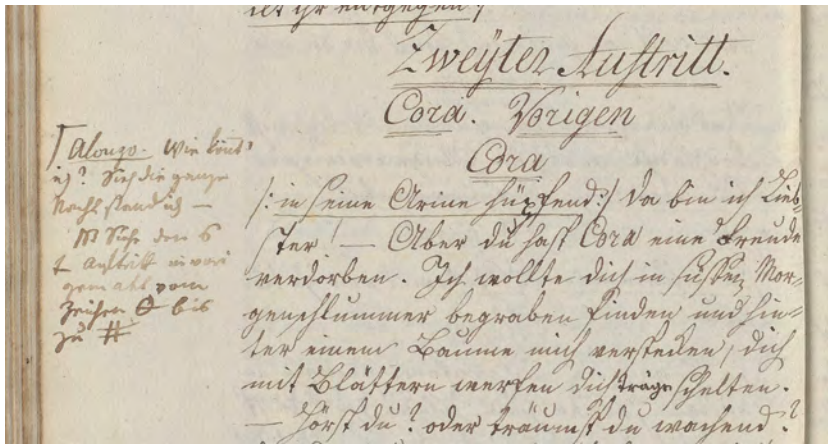 ilt ihr entgegen:/
Zweyter Auftritt.
Cora. Vorigen
Cora
/: in seine Arme hüpfend:/ Da bin ich Lieb-
ster! — Aber du hast Cora eine Freude
verdorben. Ich wollte dich in süssen Mor-
genschlummer begraben finden und hin-
ter einem Baume mich verstecken, dich
mit Blättern werfen dich träge schelten.
— Hörst du? oder träumst du wachend?
Alonzo. Wie könt'
ich? Sieh die ganze
Nacht stand ich —
NB Siehe den 6
t Auftritt im vori
gen akt vom
Zeichen ϴ bis
zu #